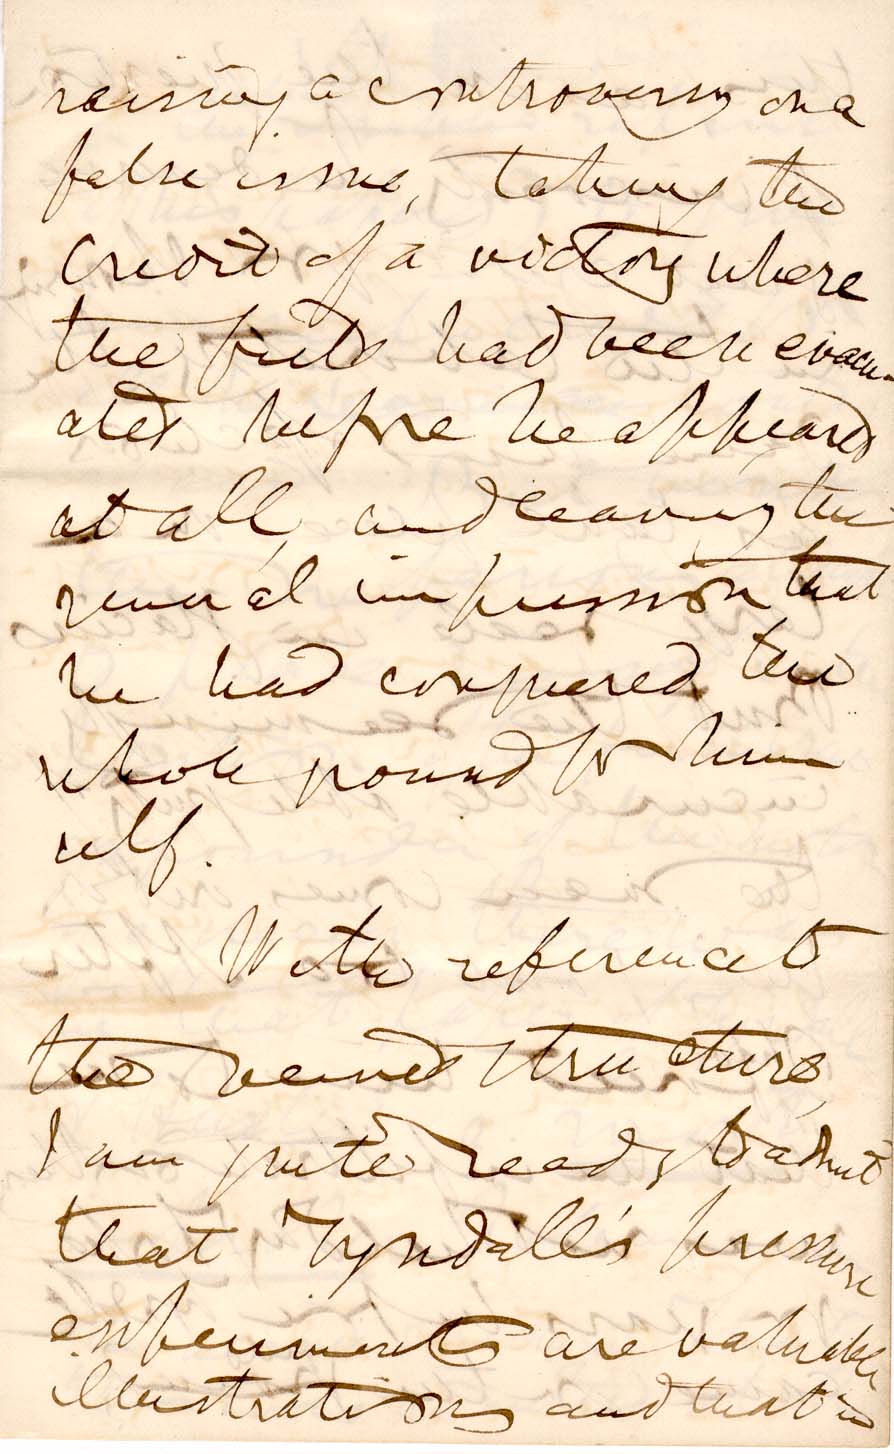 raising a controversy on a
false issue, taking the
credit of a victory where
the field had been evacu-
ated before he appeared
at all, and leaving the
general impression that
he had conquered the
whole ground for him
self.
With reference to
the veined structure,
I am quite ready to admit
that Tyndall's pressure
experiments are valuable
illustrations and that in